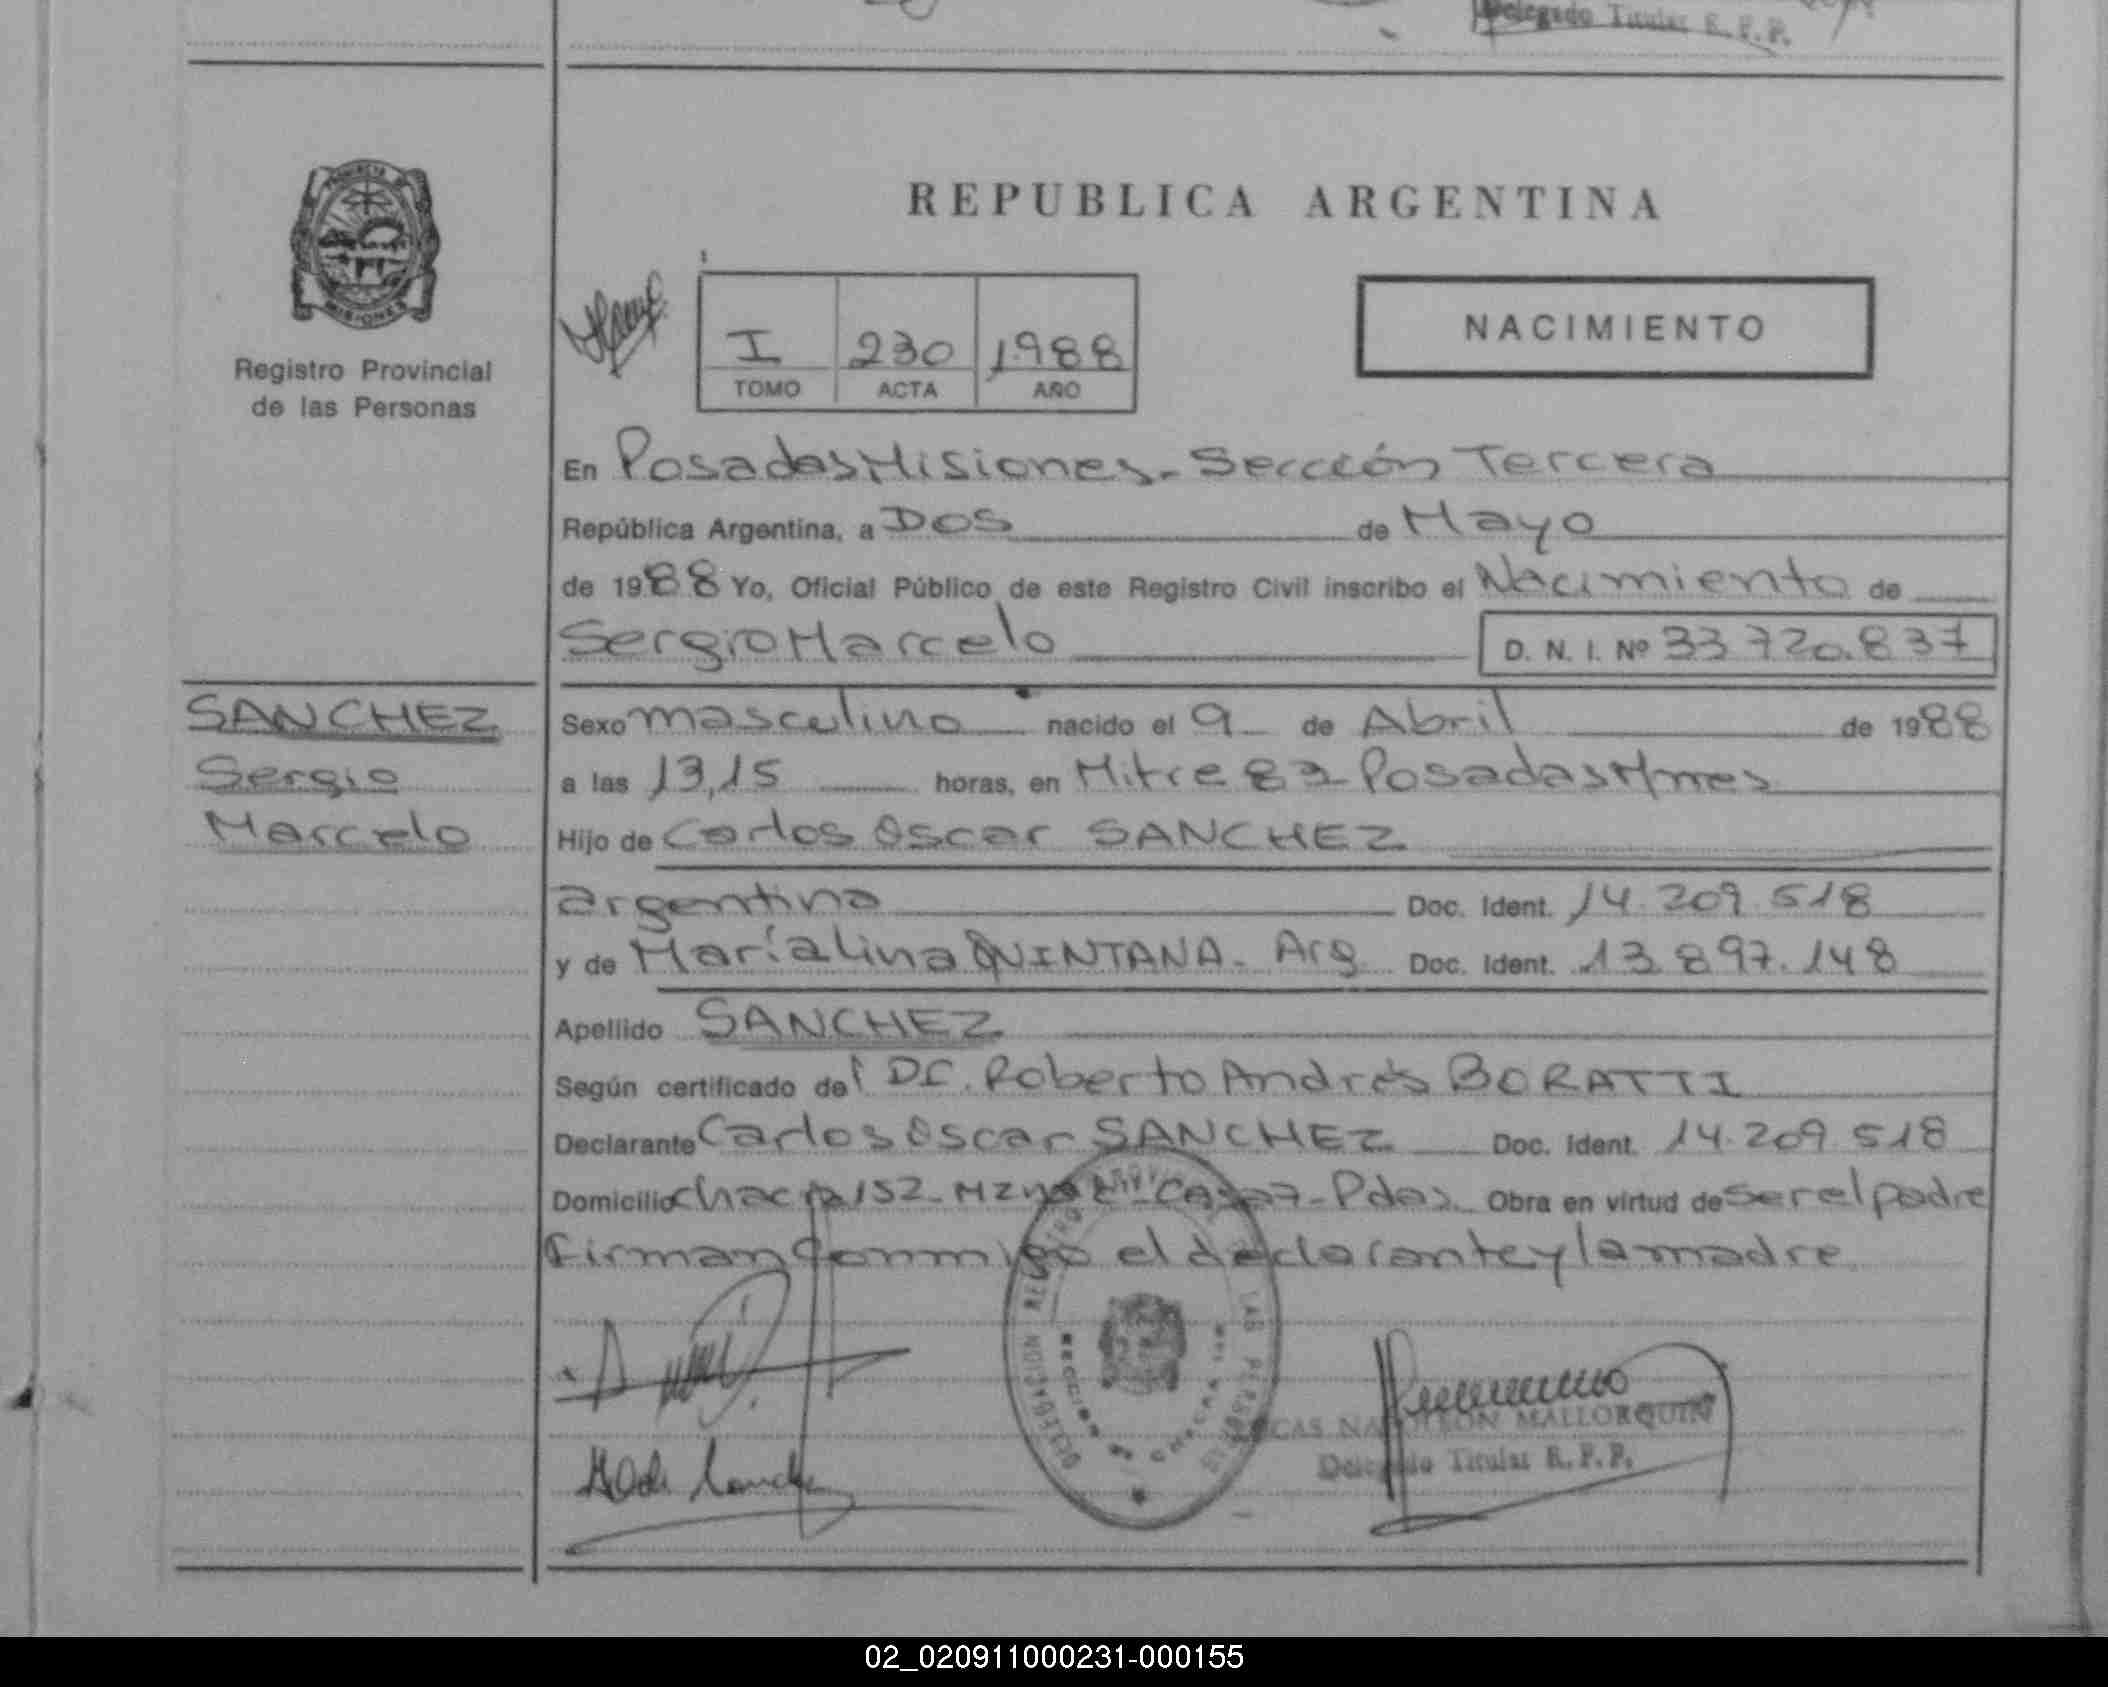 Delegado Titular R.P.P.
PROVINCIA DE
MISIONES
Registro Provincial
de las Personas
REPUBLICA ARGENTINA
I 230 1988
TOMO ACTA AÑO
NACIMIENTO
En Posadas Misiones - Sección Tercera
República Argentina, a DOS de Mayo
de 1988 Yo, Oficial Público de este Registro Civil inscribo el Nacimiento de
Sergio Marcelo D. N. I. Nº 33 720.837
SANCHEZ
Sergio
Marcelo
Sexo masculino nacido el 9 de Abril de 1988
a las 13,15 horas, en Mitre 83 Posadas Mnes
Hijo de Carlos Oscar SANCHEZ
argentino Doc. Ident. 14.209.518
y de María Lina QUINTANA - Arg Doc. Ident. 13.897.148
Apellido SANCHEZ
Según certificado del Dr. Roberto Andrés BORATTI
Declarante Carlos Oscar SANCHEZ Doc. Ident. 14.209.518
Domicilio chacra 152 - Mzna E - Casa 7 - Pdas. Obra en virtud de ser el padre
firman conmigo el declarante y la madre
DELEGACION REGISTRO PROVINCIAL DE LAS PERSONAS
SECCION 3ª
LUCAS NAPOLEON MALLORQUIN
Delegado Titular R.P.P.
02_020911000231-000155